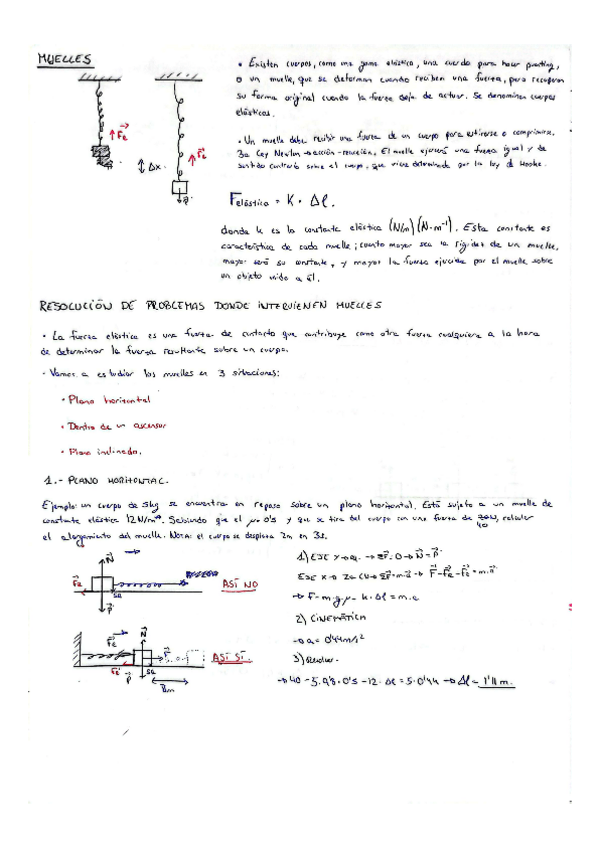 MUELLES
• Existen cuerpos, como una goma elástica, una cuerda para hacer puenting,
o un muelle, que se deforman cuando reciben una fuerza, pero recuperan
su forma original cuando la fuerza deja de actuar. Se denominan cuerpos
elásticos.
• Un muelle debe recibir una fuerza de un cuerpo para estirarse o comprimirse.
3a Ley Newton → acción-reacción. El muelle ejercerá una fuerza igual y de
sentido contrario sobre el cuerpo, que viene determinada por la ley de Hooke.
Fe
Fe
Δx.
P
Felástica = K · Δl.
donde k es la constante elástica (N/m) (N·m⁻¹). Esta constante es
característica de cada muelle; cuanto mayor sea la rigidez de un muelle,
mayor será su constante, y mayor la fuerza ejercida por el muelle sobre
un objeto unido a él.
RESOLUCIÓN DE PROBLEMAS DONDE INTERVIENEN MUELLES
• La fuerza elástica es una fuerza de contacto que contribuye como otra fuerza cualquiera a la hora
de determinar la fuerza resultante sobre un cuerpo.
• Vamos a estudiar los muelles en 3 situaciones:
• Plano horizontal
• Dentro de un ascensor
• Plano inclinado.
1.- PLANO HORIZONTAL.
Ejemplo: un cuerpo de 5kg se encuentra en reposo sobre un plano horizontal. Está sujeto a un muelle de
constante elástica 12N/m. Sabiendo que el μ=0'5 y que se tira del cuerpo con una fuerza de 40, calcular
el alargamiento del muelle. NOTA: el cuerpo se desplaza 2m en 3s.
N
P
ASÍ NO
Fe
N
F
P
ASÍ SÍ.
1) EJE Y → N = P
F - Fr - Fe = m·a
→ F - m·g·μ - K·Δl = m·a
2) CINEMÁTICA
→ a = 0'44m/s²
3) Resolver.
→ 40 - 5·9'8·0'5 - 12·Δl = 5·0'44 → Δl = 1'11 m.